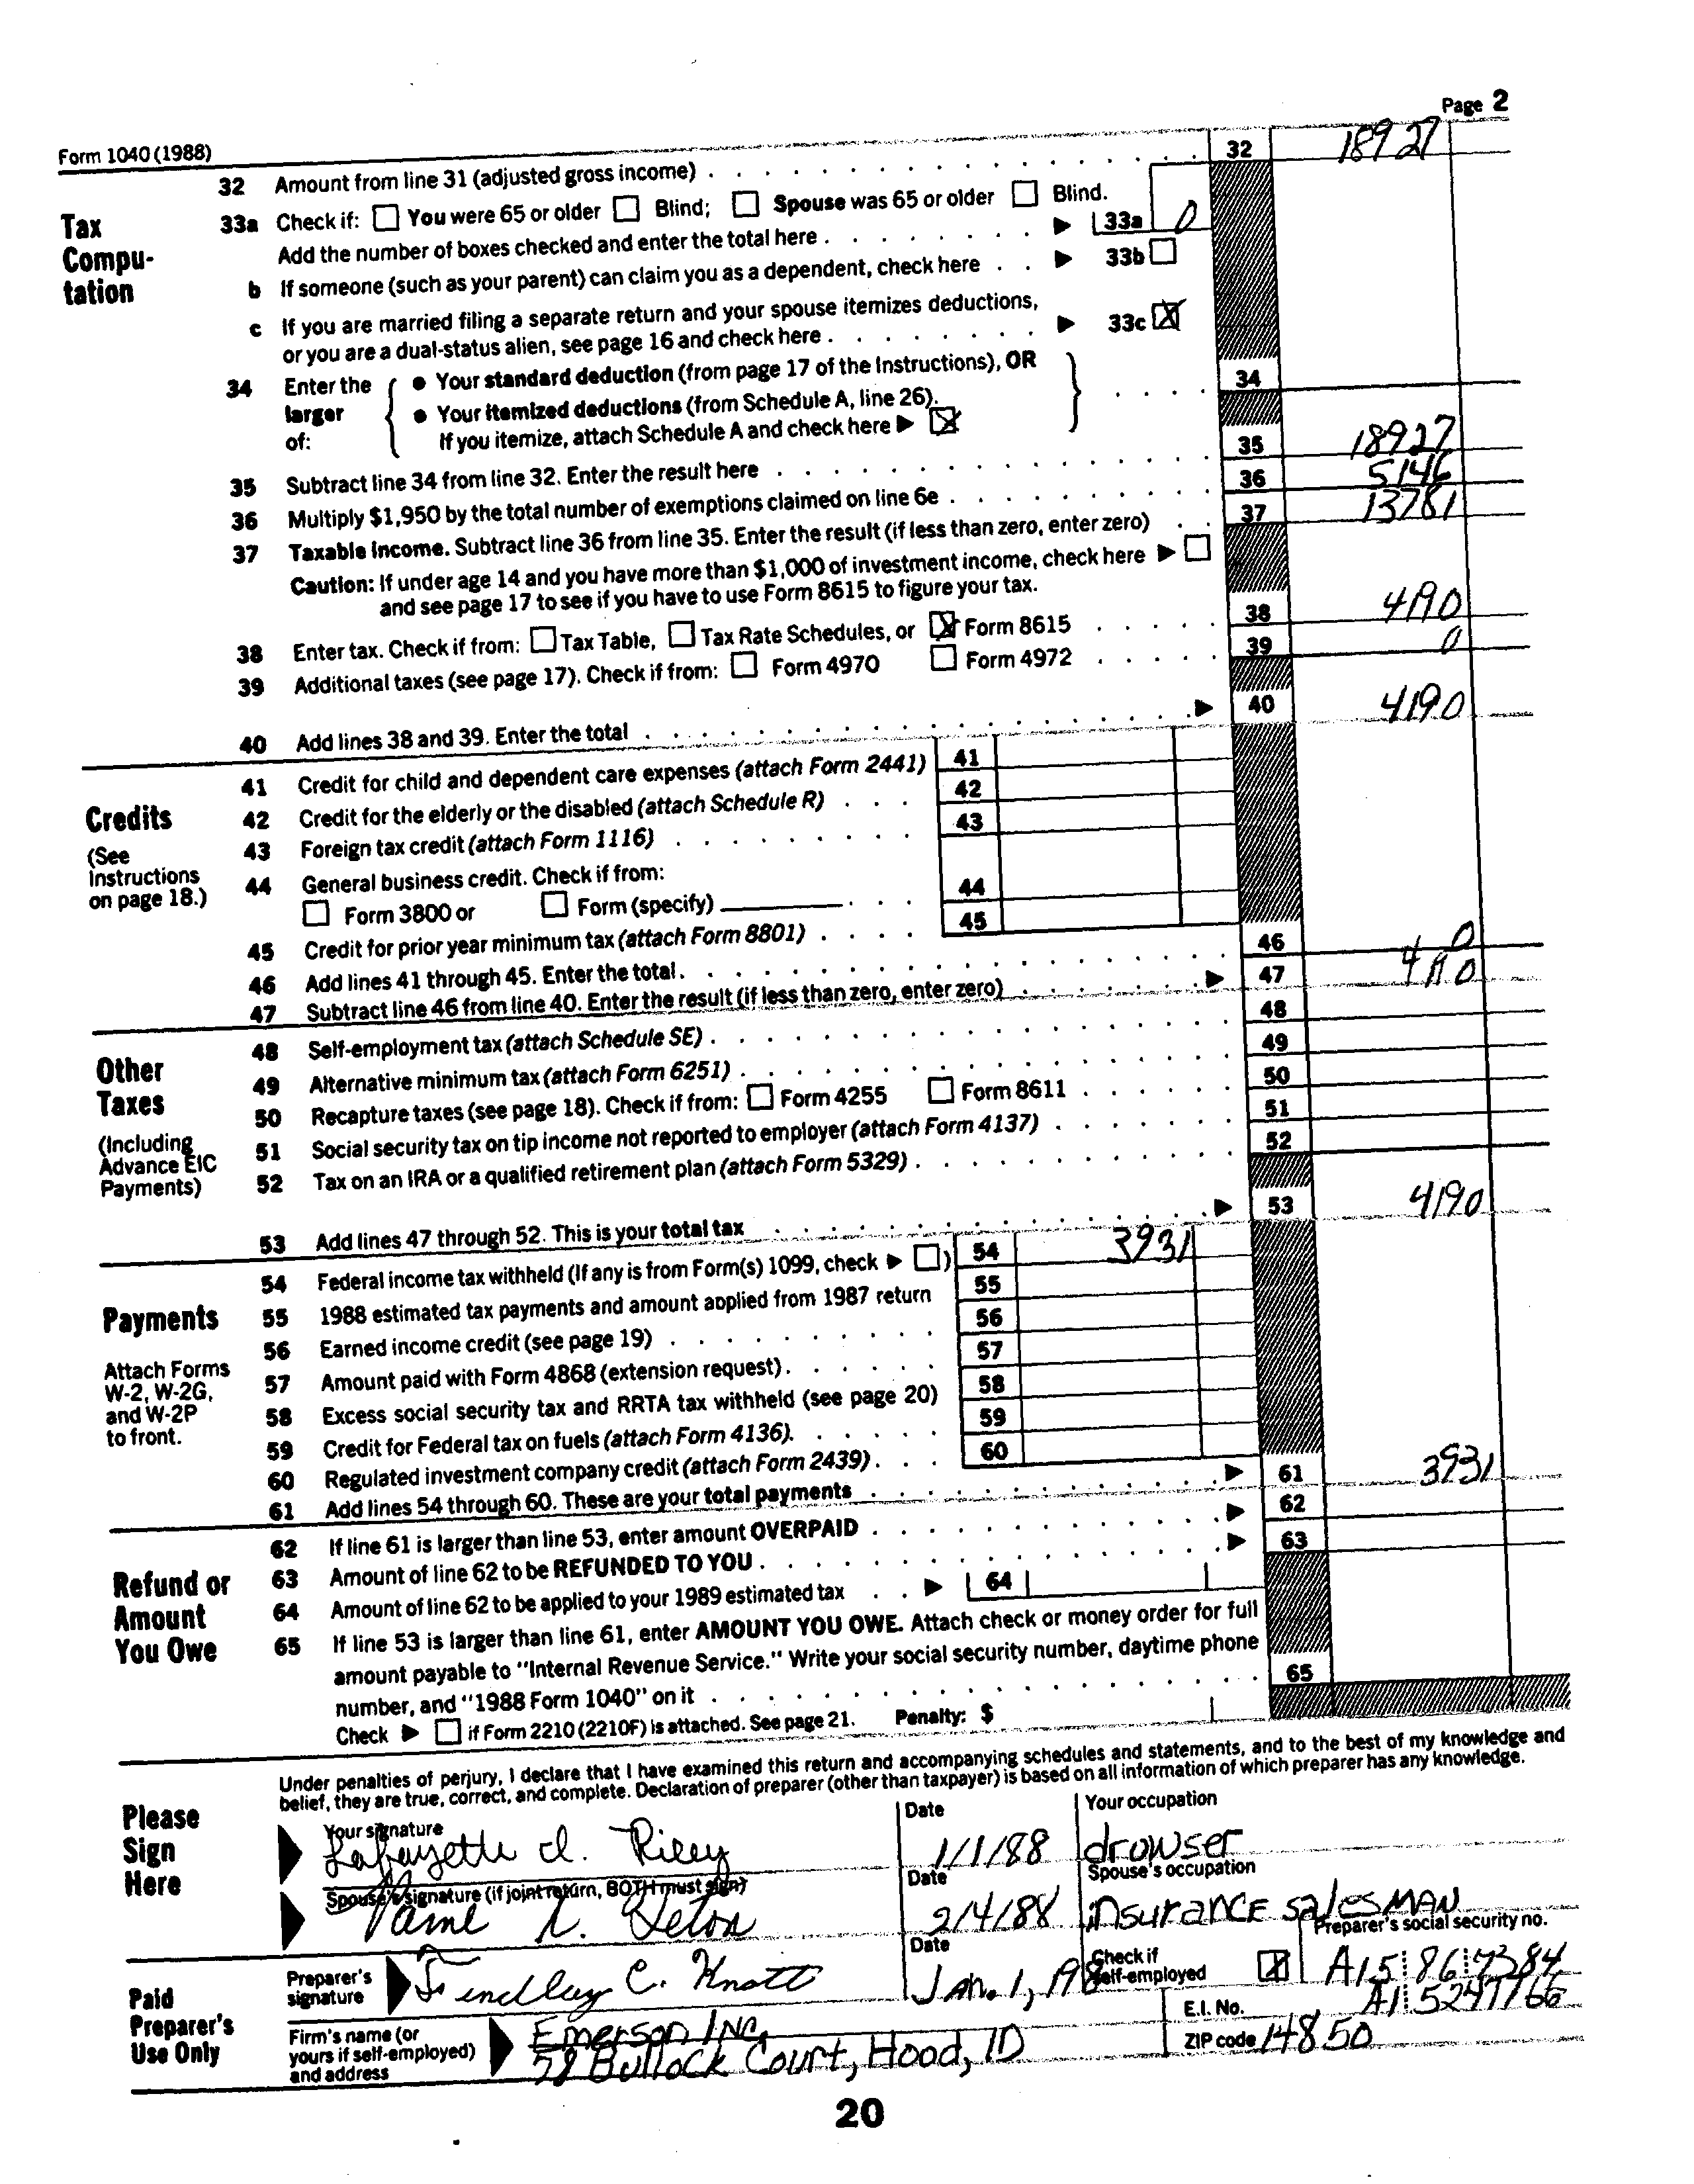 Page 2
Form 1040 (1988)
32 Amount from line 31 (adjusted gross income) 32 18927
Tax Compu- tation
33a Check if: You were 65 or older Blind; Spouse was 65 or older Blind.
Add the number of boxes checked and enter the total here 33a 0
b If someone (such as your parent) can claim you as a dependent, check here 33b
c If you are married filing a separate return and your spouse itemizes deductions,
or you are a dual-status alien, see page 16 and check here 33c X
34 Enter the larger of: • Your standard deduction (from page 17 of the Instructions), OR 34
• Your itemized deductions (from Schedule A, line 26).
If you itemize, attach Schedule A and check here X
35 Subtract line 34 from line 32. Enter the result here 35 18927
36 Multiply $1,950 by the total number of exemptions claimed on line 6e 36 5146
37 Taxable income. Subtract line 36 from line 35. Enter the result (if less than zero, enter zero) 37 13781
Caution: If under age 14 and you have more than $1,000 of investment income, check here
and see page 17 to see if you have to use Form 8615 to figure your tax.
38 Enter tax. Check if from: Tax Table, Tax Rate Schedules, or X Form 8615 38 4190
39 Additional taxes (see page 17). Check if from: Form 4970 Form 4972 39 0
40 Add lines 38 and 39. Enter the total 40 4190
Credits
(See Instructions on page 18.)
41 Credit for child and dependent care expenses (attach Form 2441) 41
42 Credit for the elderly or the disabled (attach Schedule R) 42
43 Foreign tax credit (attach Form 1116) 43
44 General business credit. Check if from:
Form 3800 or Form (specify) 44
45 Credit for prior year minimum tax (attach Form 8801) 45
46 Add lines 41 through 45. Enter the total. 46 0
47 Subtract line 46 from line 40. Enter the result (if less than zero, enter zero) 47 4190
Other Taxes
(Including Advance EIC Payments)
48 Self-employment tax (attach Schedule SE) 48
49 Alternative minimum tax (attach Form 6251) 49
50 Recapture taxes (see page 18). Check if from: Form 4255 Form 8611 50
51 Social security tax on tip income not reported to employer (attach Form 4137) 51
52 Tax on an IRA or a qualified retirement plan (attach Form 5329) 52
53 Add lines 47 through 52. This is your total tax 53 4190
Payments
Attach Forms W-2, W-2G, and W-2P to front.
54 Federal income tax withheld (If any is from Form(s) 1099, check ) 54 3931
55 1988 estimated tax payments and amount applied from 1987 return 55
56 Earned income credit (see page 19) 56
57 Amount paid with Form 4868 (extension request) 57
58 Excess social security tax and RRTA tax withheld (see page 20) 58
59 Credit for Federal tax on fuels (attach Form 4136). 59
60 Regulated investment company credit (attach Form 2439) 60
61 Add lines 54 through 60. These are your total payments 61 3931
Refund or Amount You Owe
62 If line 61 is larger than line 53, enter amount OVERPAID 62
63 Amount of line 62 to be REFUNDED TO YOU 63
64 Amount of line 62 to be applied to your 1989 estimated tax 64
65 If line 53 is larger than line 61, enter AMOUNT YOU OWE. Attach check or money order for full
amount payable to "Internal Revenue Service." Write your social security number, daytime phone
number, and "1988 Form 1040" on it 65
Check if Form 2210 (2210F) is attached. See page 21. Penalty: $
Please Sign Here
Under penalties of perjury, I declare that I have examined this return and accompanying schedules and statements, and to the best of my knowledge and
belief, they are true, correct, and complete. Declaration of preparer (other than taxpayer) is based on all information of which preparer has any knowledge.
Your signature Date Your occupation
Lafayette d. Riley 1/1/88 drowser
Spouse's signature (if joint return, BOTH must sign) Date Spouse's occupation
2/4/88 insurance salesman
Paid Preparer's Use Only
Preparer's signature Findlay C. Knott Date Jan. 1, 198 Check if self-employed X Preparer's social security no. A15 86 7384
Firm's name (or yours if self-employed) and address Emerson Inc. E.I. No. A1 5247766
58 Bullock Court, Hood, ID ZIP code 14850
20